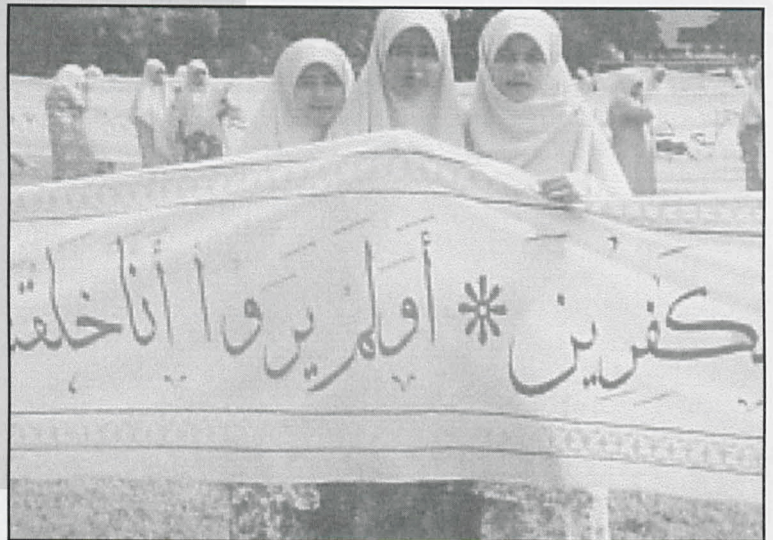 كفرين * أولم يروا أنا خلقنـ